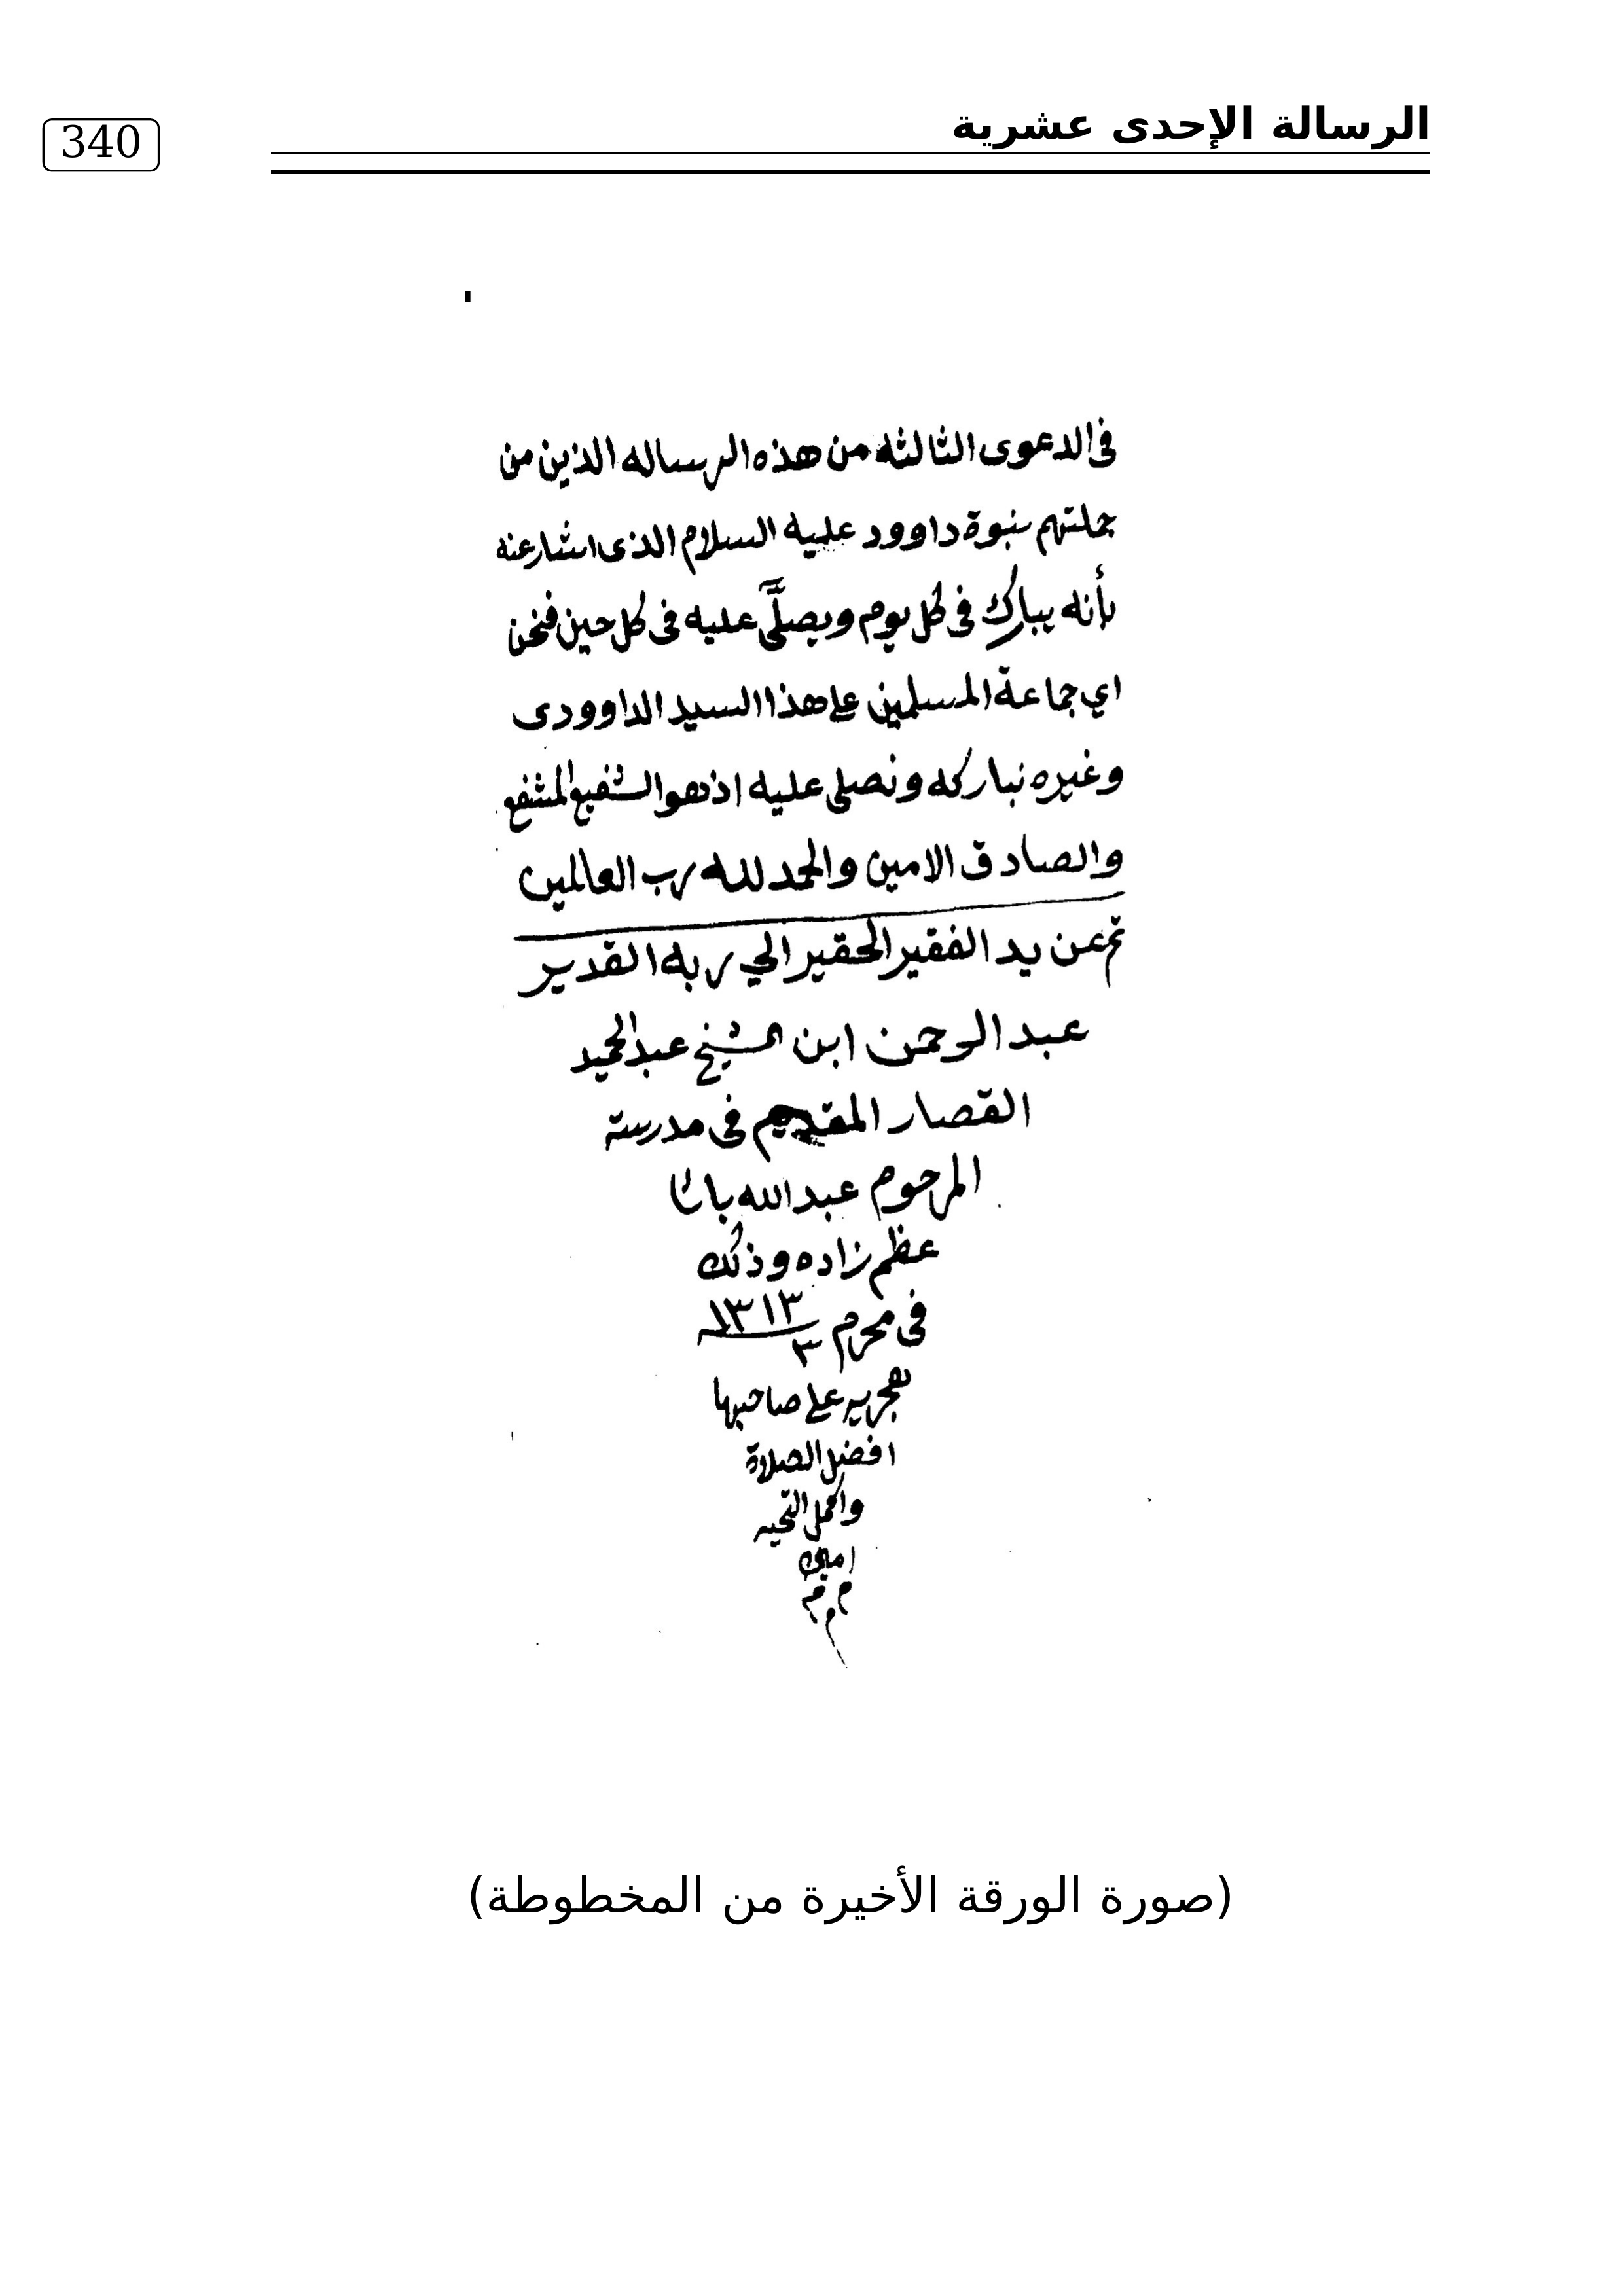 الرسالة الإحدى عشرية
340
فى الدعوى الثالثه من هذه الرساله الذين من
جملتهم بنبوة داوود عليه السلام الذى اشار عنه
بأنه يبارك فى كل يوم ويصلَّى عليه فى كل حين فنحن
اي جماعة المسلمين على هذا السيد الداوودى
وغيره نباركه ونصلى عليه اذ هو الشفيع المشفع
والصادق الامين والحمد لله رب العالمين
تم عن يد الفقير الحقير الي ربه القدير
عبد الرحمن ابن الشيخ عبد الحميد
القصار المقيم فى مدرسة
المرحوم عبد الله باشا
عظم زاده وذلك
فى محرم ٣ ١٣١٣
هجريه على صاحبها
افضل الصلاة
واكمل التحيه
امين
م م م
(صورة الورقة الأخيرة من المخطوطة)